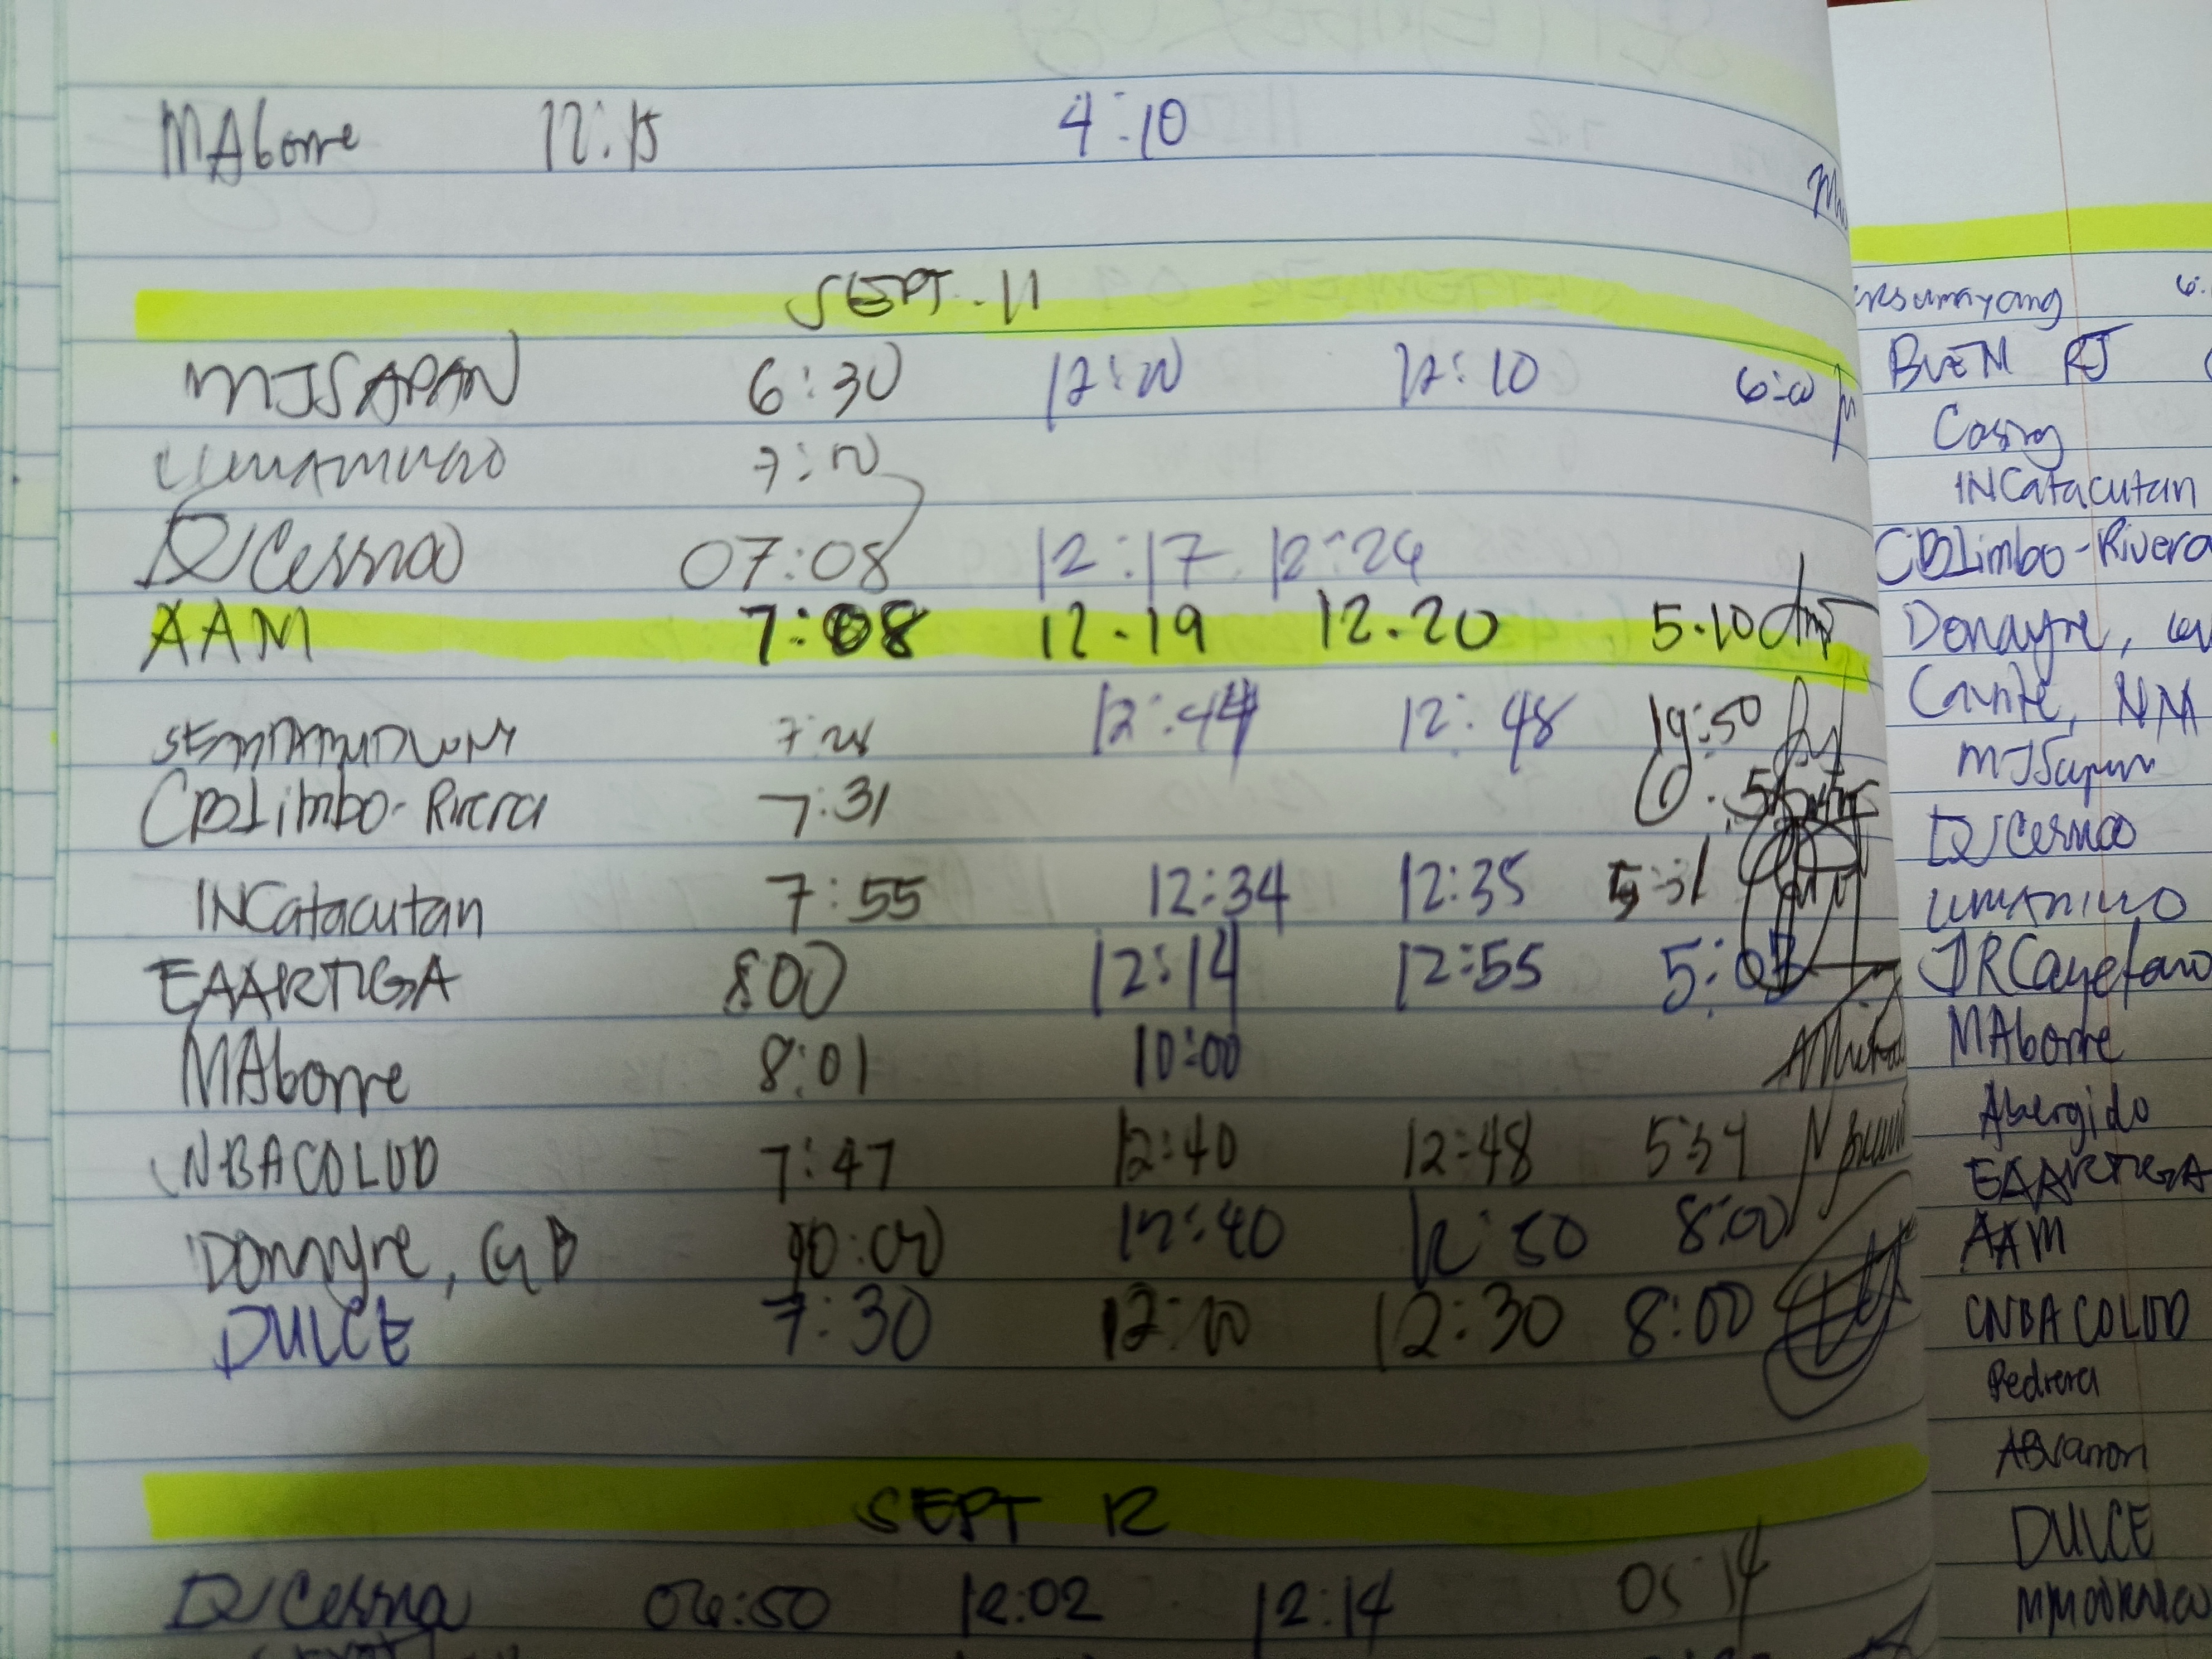 MAborre 12:15 4:10
SEPT. 11
MJSAPAN 6:30 12:00 12:10 6:00
7:00
DJCerna 07:08 12:17 12:24
AAM 7:08 12.19 12.20 5.10
7:28 12:44 12:48 19:50
CDLimbo-Rivera 7:31
INCatacutan 7:55 12:34 12:35 5:31
EAARTIGA 800 12:14 12:55 5:03
MAborre 8:01 10:00
CNBACOLUD 7:47 12:40 12:48 5:34
Donayre, GB 10:00 12:40 12:50 8:00
DULCE 7:30 12:00 12:30 8:00
SEPT 12
DJCerna 06:50 12:02 12:14 05:14
BUEN RJ
Casing
INCatacutan
CDLimbo-Rivera
Donayre,
Cayite, NM
MJSapan
DJCerna
JRCayetano
MAborre
Abergido
EAARTIGA
AAM
CNBACOLUD
Pedrera
DULCE